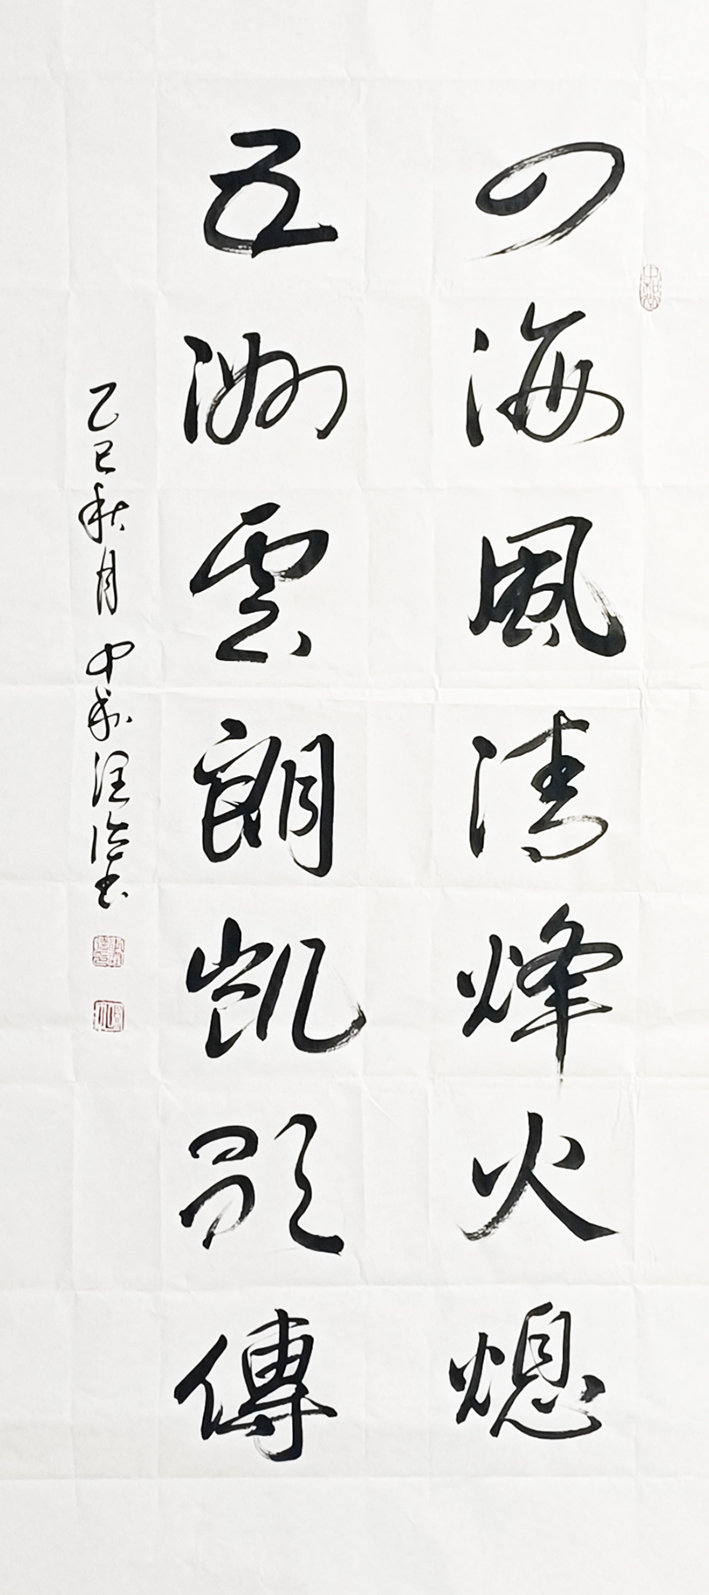 四海風清烽火熄
五洲雲朗凱歌傳
乙巳秋月 書